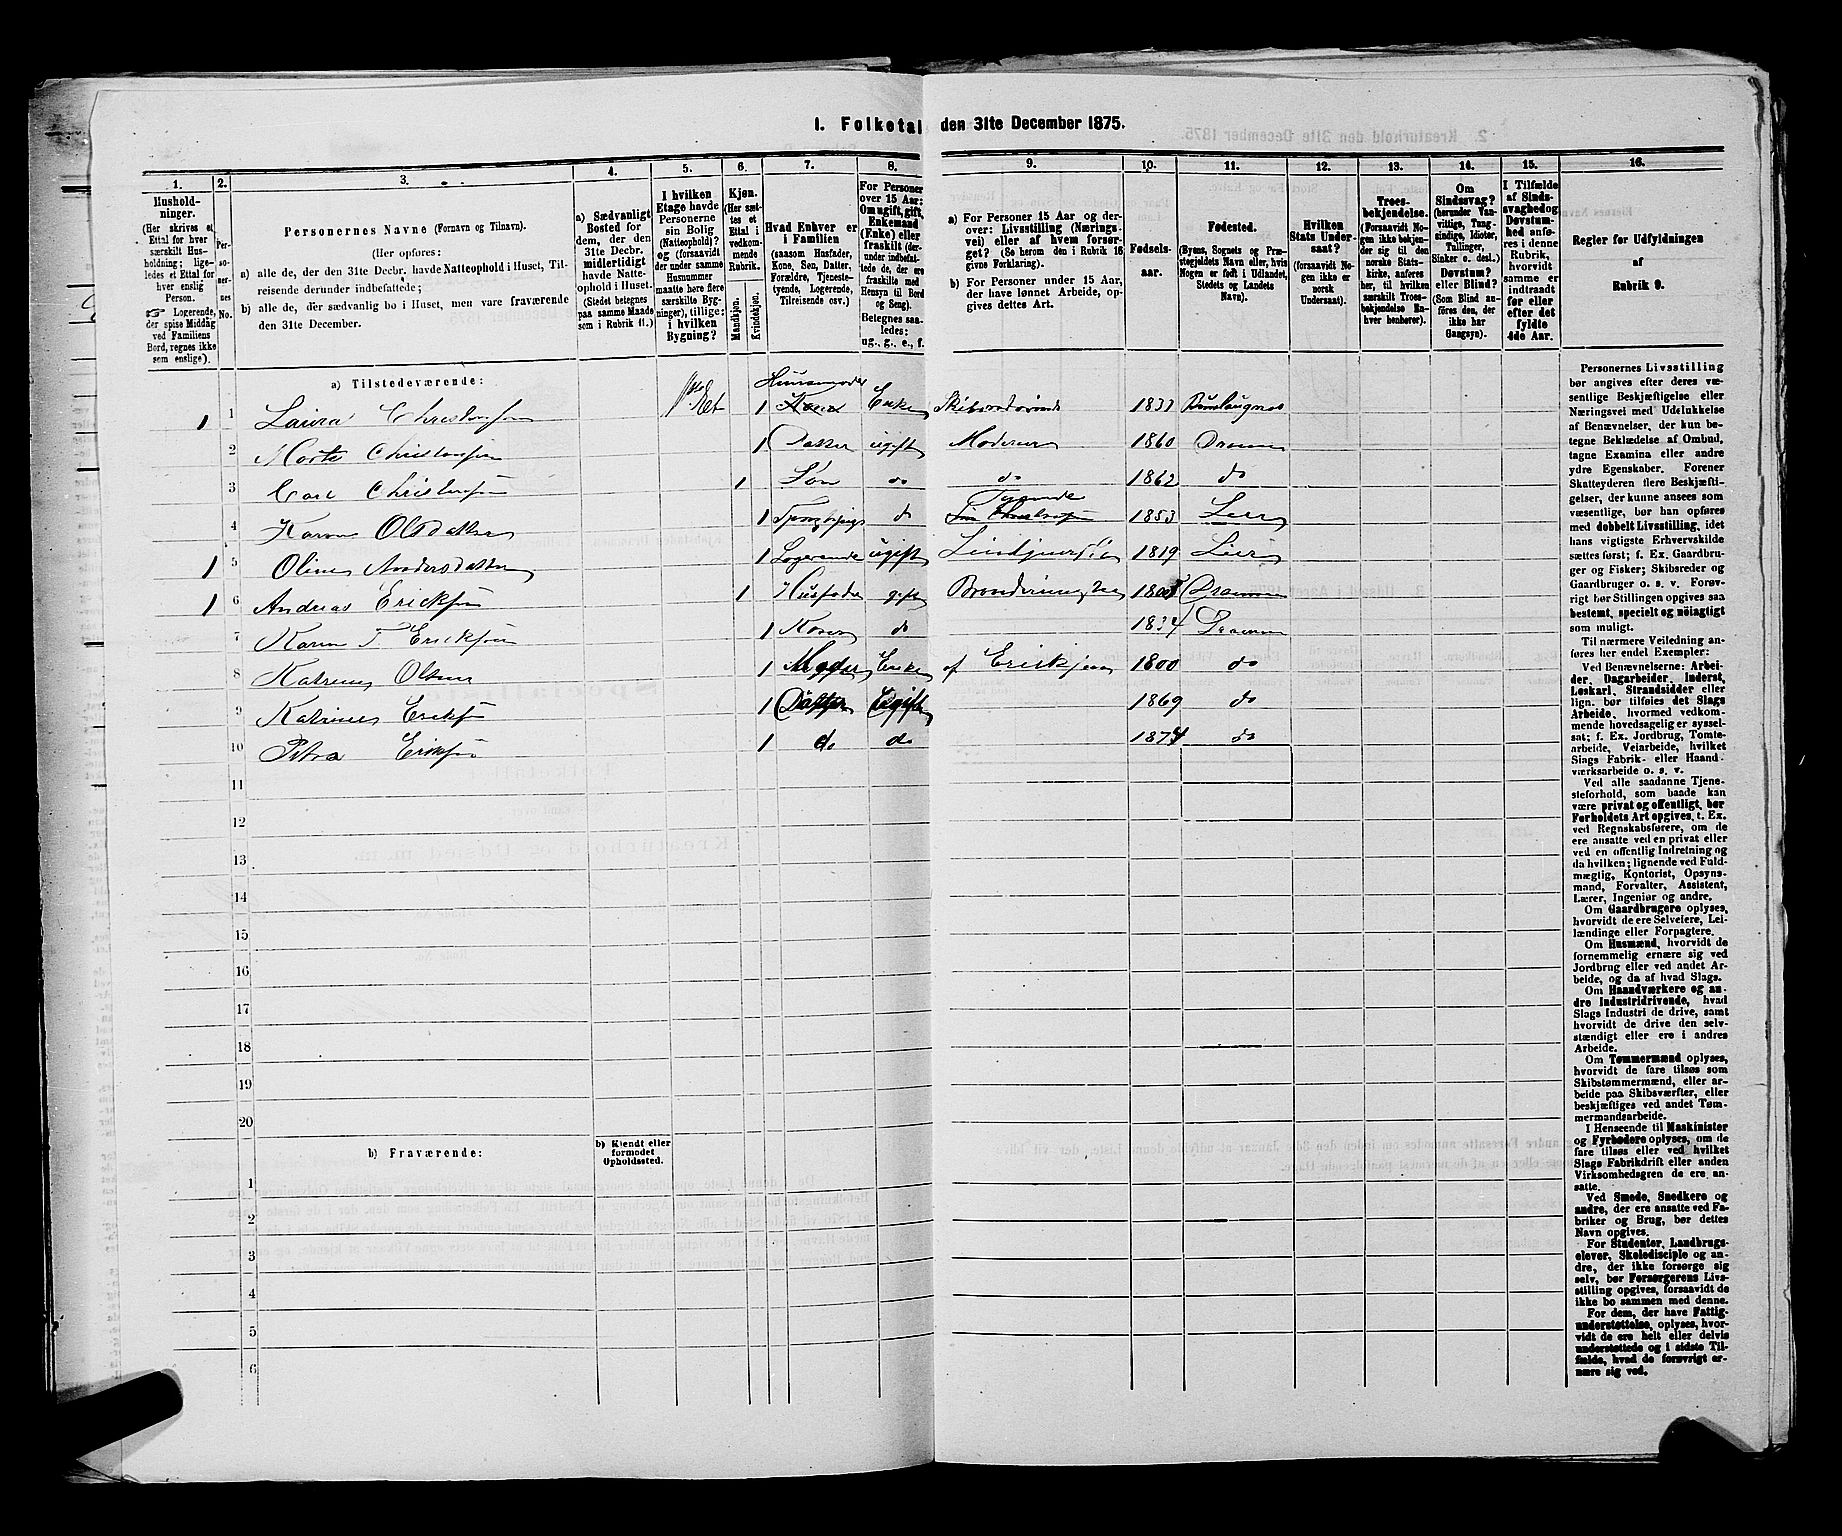 1. Folketal den 31te December 1875.
1. 2. 3. 4. 5. 6. 7. 8. 9. 10. 11. 12. 13. 14. 15. 16.
Hushold-
ninger.
(Her skrives et
Ettal for hver
særskilt Hus-
holdning; lige-
ledes et Ettal for
hver enslig
Person.
☞ Logerende,
der spise Middag
ved Familiens
Bord, regnes ikke
som enslige).
Per-
so-
ner-
nes
No.
Personernes Navne (Fornavn og Tilnavn).
(Her opføres:
a) alle de, der den 31te Decbr. havde Natteophold i Huset, Til-
reisende derunder indbefattede;
b) alle de, der sædvanlig bo i Huset, men vare fraværende
den 31te December.
a) Sædvanligt
Bosted for
dem, der den
31te Decbr.
midlertidigt
havde Natte-
ophold i Huset.
(Stedet betegnes
paa samme Maade
som i Rubrik 11.)
I hvilken
Etage havde
Personerne
sin Bolig
(Natteophold)?
og (forsaavidt
der under samme
Husnummer
maatte høre flere
særskilte Byg-
ninger), tillige:
i hvilken
Bygning?
Kjøn.
(Her sæt-
tes et
Ettal i
vedkom-
mende
Rubrik.
Mandkjøn.
Kvindekjøn.
Hvad Enhver er
i Familien
(saasom Husfader,
Kone, Søn, Datter,
Forældre, Tjeneste-
tyende, Logerende,
Tilreisende osv.)
For Personer
over 15 Aar:
Om ugift, gift,
Enkemand
(Enke) eller
fraskilt (der-
under indbefat-
tede de, der ere
fraskilte med
Hensyn til Bord
og Seng).
Betegnes saa-
ledes:
ug., g., e., f.
a) For Personer 15 Aar og der-
over: Livsstilling (Nærings-
vei) eller af hvem forsør-
get? (Se herom den i Rubrik 16
givne Forklaring).
b) For Personer under 15 Aar,
der have lønnet Arbeide, op-
gives dettes Art.
Fødsels-
aar.
Fødested.
(Byens, Sognets og Præ-
stegjeldets Navn eller, hvis
Nogen er født i Udlandet,
Stedets og Landets
Navn).
Hvilken
Stats Under-
saat?
(forsaavidt No-
gen ikke er
norsk
Undersaat).
Troes-
bekjendelse.
(Forsaavidt No-
gen ikke bekjen-
der sig til den
norske Stats-
kirke, anføres
her, til hvilken
særskilt Troes-
bekjendelse En-
hver henhører).
Om
Sindssvag?
(herunder Van-
vittige, Tung-
sindige, Idioter,
Tullinger,
Sinker o. desl.)
Døvstum?
eller Blind?
(Som Blind an-
føres den, der
ikke har
Gangsyn).
I Tilfælde
af Sinds-
svaghed og
Døvstum-
hed anfø-
res i denne
Rubrik,
hvorvidt
samme er
indtraadt
før eller
efter det
fyldte
4de Aar.
Regler for Udfyldningen
af
Rubrik 9.
a) Tilstedeværende:
1 1 Laura 1 Kone Enke 1833
2 1 Datter ugift Moderen 1860
3 Carl 1 Søn do do 1862 do
4 Karen Olsdatter 1 do 1853 Lier
1 5 Oline Andersdatter 1 Logerende ugift 1819 Lier
1 6 Andreas Eriksen 1 Husfader gift
7 Karen T. Eriksen 1 Kone do 1834
8 Katrine Olsen 1 Moder Enke af Eriksen 1800 do
9 Katrine Eriksen 1 Datter Ugift 1869 do
10 Petra Eriksen 1 do do 1874 do
11
12
13
14
15
16
17
18
19
20
b) Fraværende:
b) Kjendt eller
formodet
Opholdssted.
1
2
3
4
5
6
Personernes Livsstilling
bør angives efter deres væ-
sentlige Beskjæftigelse eller
Næringsvei med Udelukkelse
af Benævnelser, der kun be-
tegne Beklædelse af Ombud,
tagne Examina eller andre
ydre Egenskaber. Forener
Skatteyderen flere Beskjæfti-
gelser, der kunne ansees som
væsentlige, bør han opføres
med dobbelt Livsstilling, idet
hans vigtigste Erhvervskilde
sættes først; f. Ex. Gaardbru-
ger og Fisker; Skibsreder og
Gaardbruger o. s. v. Forøv-
rigt bør Stillingen opgives saa
bestemt, specielt og nøiagtigt
som muligt.
Til nærmere Veiledning an-
føres her endel Exempler:
Ved Benævnelserne: Arbei-
der, Dagarbeider, Inderst,
Løskarl, Strandsidder eller
lign. bør tilføies det Slags
Arbeide, hvormed vedkom-
mende hovedsagelig er syssel-
sat; f. Ex. Jordbrug, Tomte-
arbeide, Veiarbeide, hvilket
Slags Fabrik- eller Haand-
værksarbeide o. s. v.
Ved alle saadanne Tjene-
steforhold, som baade kan
være privat og offentligt, bør
Forholdets Art opgives, t. Ex.
ved Regnskabsførere, om de
ere ansatte ved en privat eller
ved en offentlig Indretning og
da hvilken; lignende ved Fuld-
mægtig, Kontorist, Opsyns-
mand, Forvalter, Assistent,
Lærer, Ingeniør og andre.
Om Gaardbrugere oplyses,
hvorvidt de ere Selveiere, Lei-
lændinge eller Forpagtere.
Om Husmænd, hvorvidt de
fornemmelig ernære sig ved
Jordbrug eller ved andet Ar-
beide, og da af hvad Slags.
Om Haandværkere og an-
dre Industridrivende, hvad
Slags Industri de drive, samt
hvorvidt de drive den selv-
stændigt eller ere i andres
Arbeide.
Om Tømmermænd oplyses,
hvorvidt de fare tilsøs som
Skibstømmermænd, eller ar-
beide paa Skibsværfter, eller
beskjæftiges ved andet Tøm-
mermandsarbeide.
I Henseende til Maskinister
og Fyrbødere oplyses, om de
fare tilsøs eller ved hvilket
Slags Fabrikdrift eller anden
Virksomhedsgren de ere an-
satte.
Ved Smede, Snedkere og
andre, der ere ansatte ved Fa-
briker og Brug, bør dettes
Navn opgives.
For Studenter, Landbrugs-
elever, Skoledisciple og an-
dre, der ikke forsørge sig
selv, bør Forsørgerens Livs-
stilling opgives, forsaavidt de
ikke bo sammen med denne.
For dem, der have Fattig-
understøttelse, oplyses, hvor-
vidt de ere helt eller delvis
understøttede og i sidste Til-
fælde, hvad de forøvrigt er-
nære sig ved.